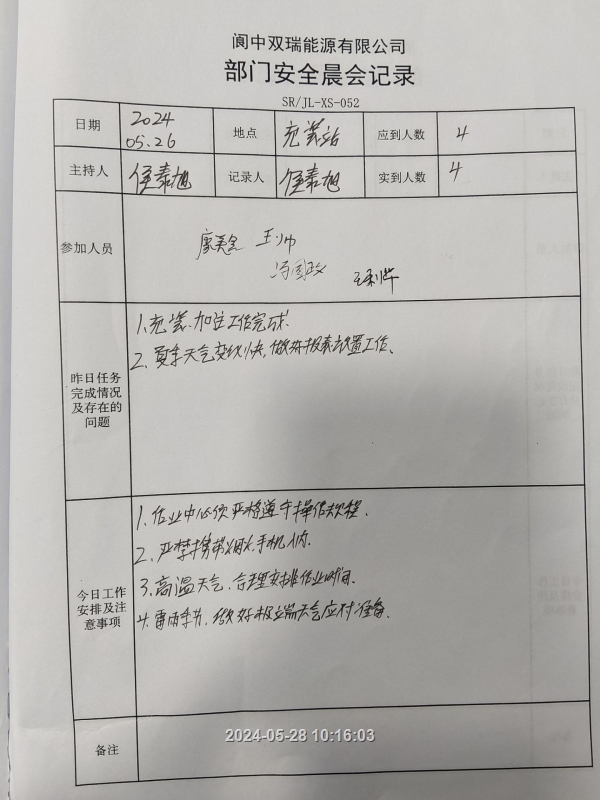 阆中双瑞能源有限公司
部门安全晨会记录
SR/JL-XS-052
日期 2024 05.26 地点 充装站 应到人数 4
主持人 记录人 实到人数 4
参加人员 王小帅
冯国政
昨日任务完成情况及存在的问题
1.充装.加注工作完成.
2.夏季天气变化快,做好 工作、
今日工作安排及注意事项
1.作业中必须严格遵守操作规程.
2.严禁携带烟火,手机入内.
3.高温天气.合理安排作业时间.
4.雷雨季节,做好极端天气应对准备.
备注
2024-05-28 10:16:03